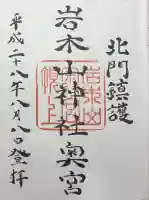 北門鎮護
岩木山神社奥宮
平成二十八年八月八日登拝